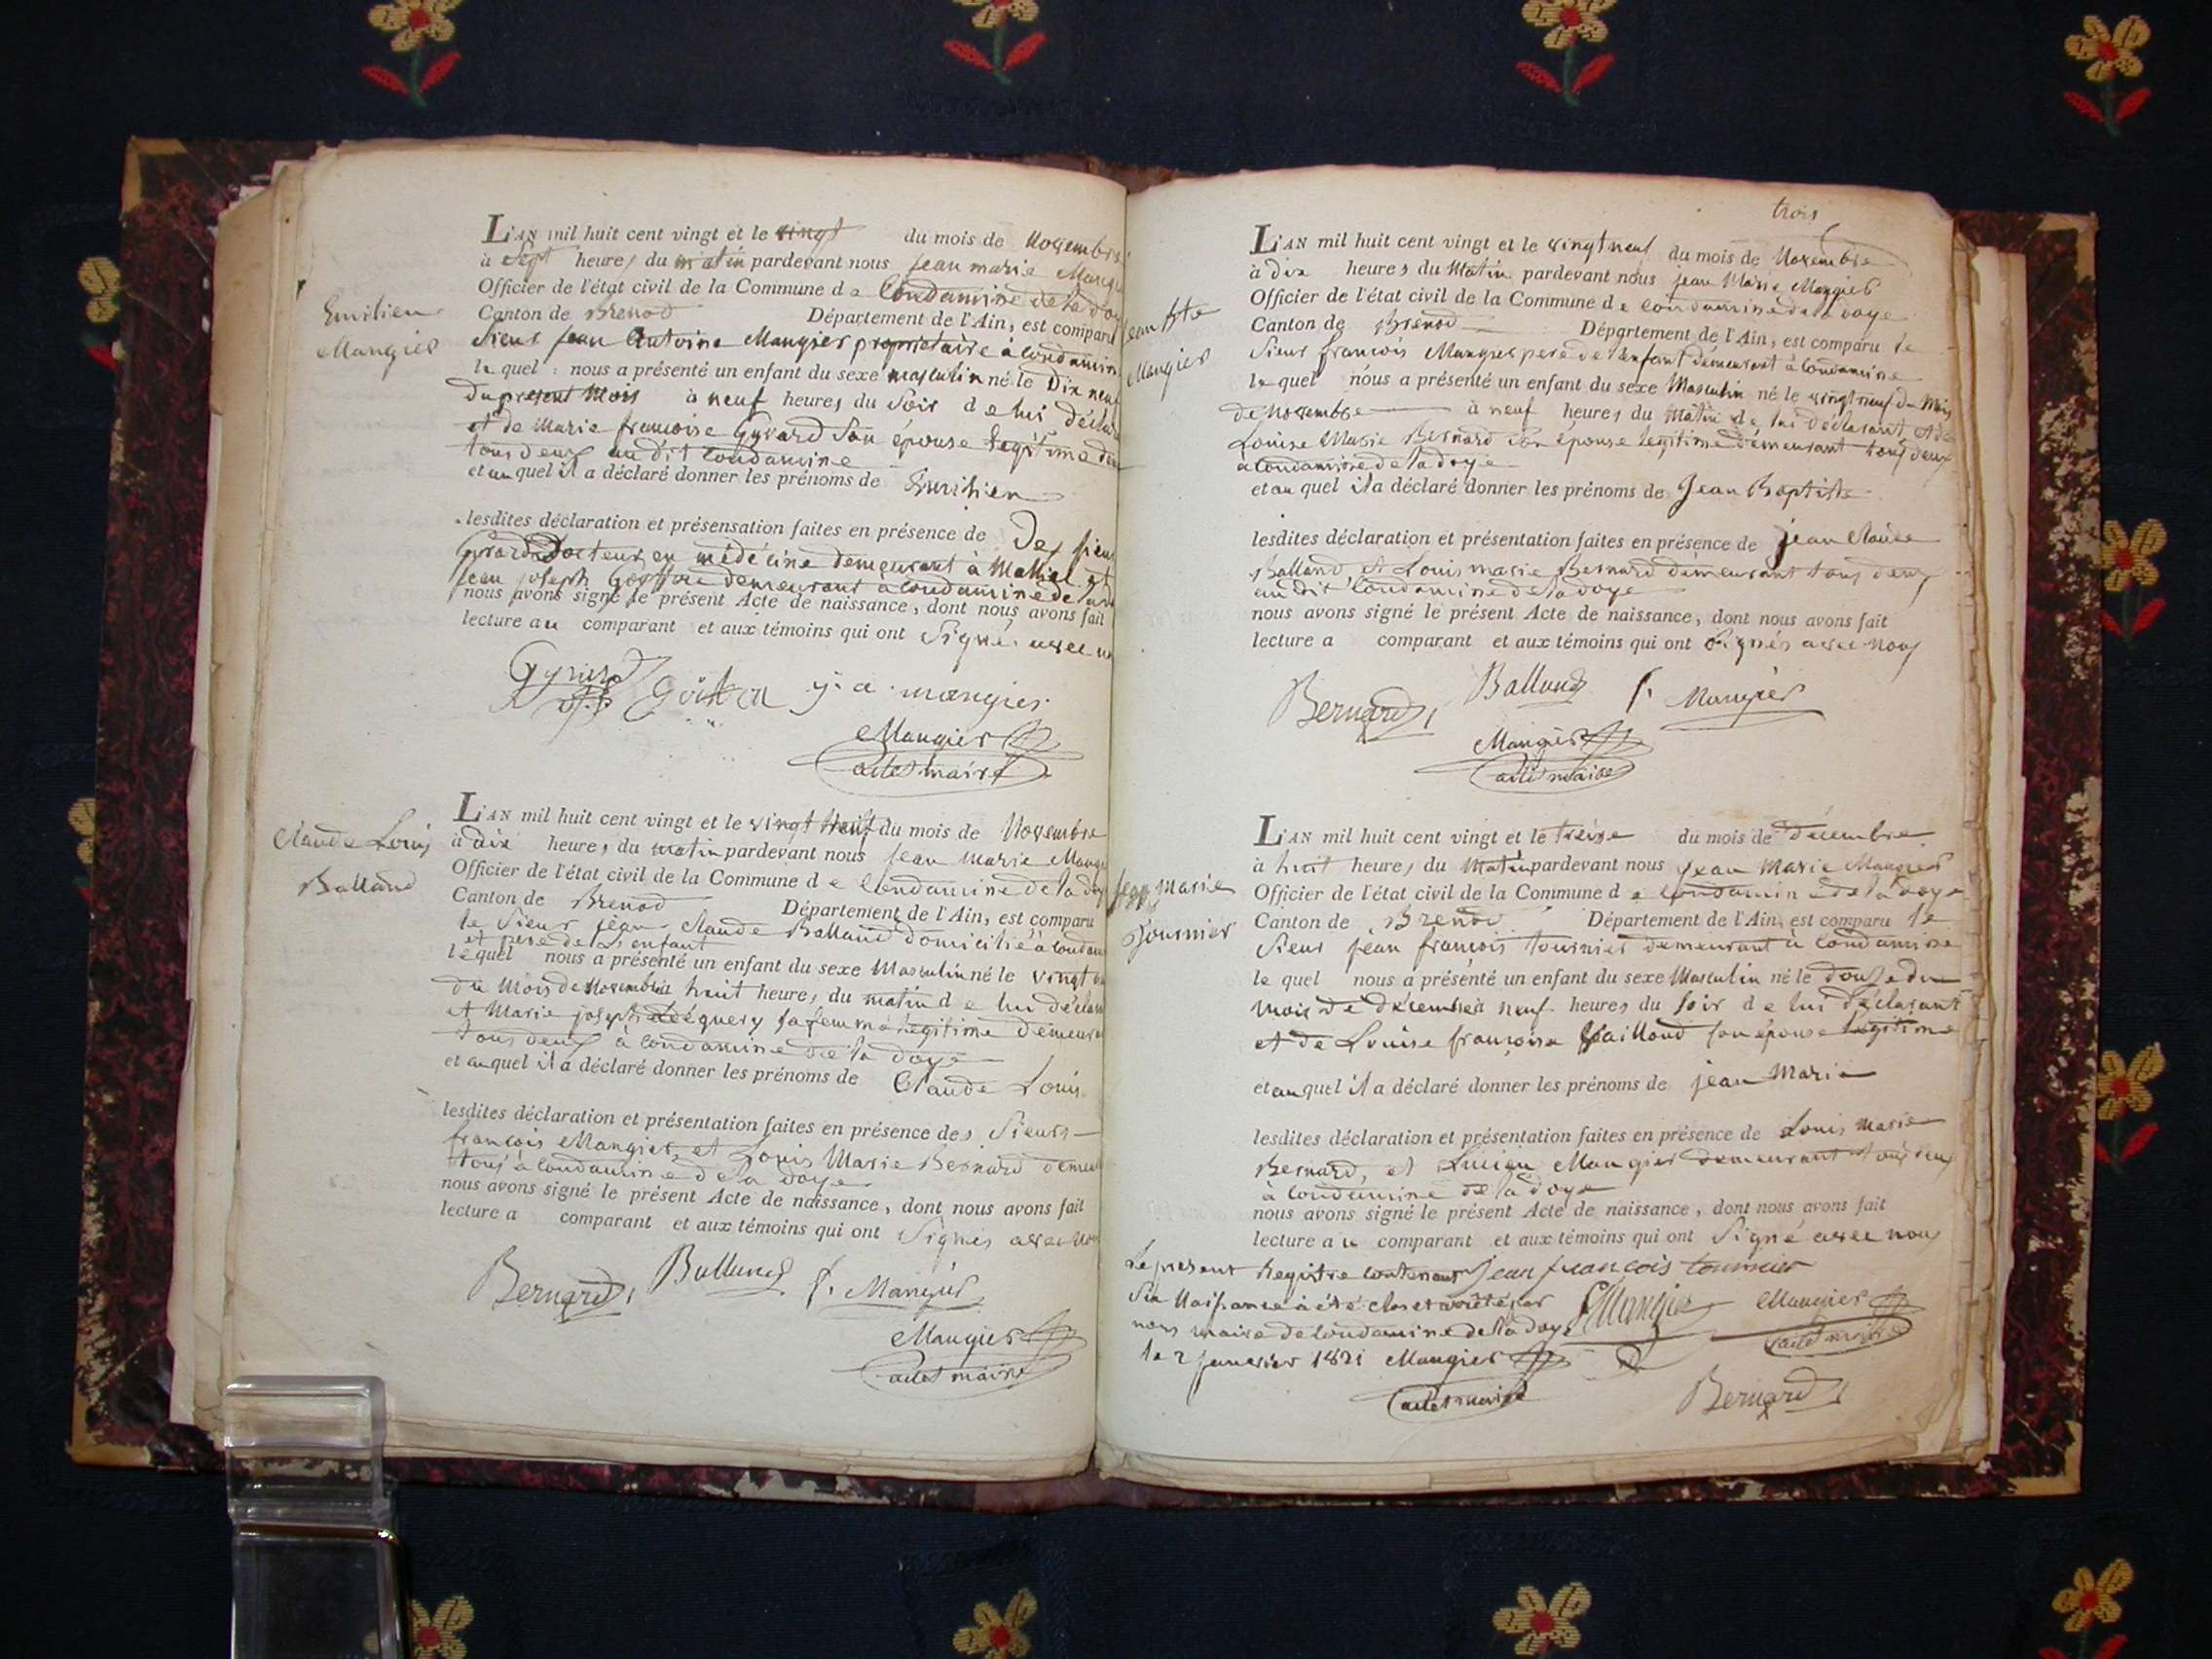 Emilien
Mangier
L'AN mil huit cent vingt et le vingt du mois de Novembre
à Sept heures du matin pardevant nous jean marie
Officier de l'état civil de la Commune de Condamine de la
Canton de Brenod Département de l'Ain, est comparu
Sieur jean Antoine Mangier propriétaire à Condamine
lequel nous a présenté un enfant du sexe masculin né le Dix neuf
du présent Mois à neuf heures du Soir de lui
et de Marie françoise Gyrard Son épouse legitime
tous deux audit Condamine
et auquel il a déclaré donner les prénoms de Emilien
lesdites déclaration et présensation faites en présence de Des
Docteur en médécine demeurant à et
jean joseph demeurant a Condamine de la
nous avons signé le présent Acte de naissance, dont nous avons fait
lecture au comparant et aux témoins qui ont Signé avec
j. a. mangier
Mangier
maire
Claude Louis
Balland
L'AN mil huit cent vingt et le vingt neuf du mois de Novembre
à dix heures du matin pardevant nous jean marie
Officier de l'état civil de la Commune de Condamine de la
Canton de Brenod Département de l'Ain, est comparu
le Sieur jean Claude Balland domicilié à
et pere de l'enfant
lequel nous a présenté un enfant du sexe Masculin né le vingt
du Mois de Novembre huit heures du matin de lui
et Marie joseph sa femme legitime
tous deux à Condamine de la doye
et auquel il a déclaré donner les prénoms de Claude Louis
lesdites déclaration et présentation faites en présence des Sieurs
françois Mangier et Louis Marie Bernard
tous à Condamine de la doye
nous avons signé le présent Acte de naissance, dont nous avons fait
lecture a comparant et aux témoins qui ont Signés avec
Bernard Balland f. Mangier
Mangier
maire
trois
Mangier
L'AN mil huit cent vingt et le vingt neuf du mois de Novembre
à dix heures du Matin pardevant nous jean Marie Mangier
Officier de l'état civil de la Commune de Condamine de la doye
Canton de Brenod Département de l'Ain, est comparu le
Sieur françois Mangier pere de l'enfant demeurant à Condamine
lequel nous a présenté un enfant du sexe Masculin né le vingt neuf du Mois
de Novembre à neuf heures du Matin de lui déclarant et de
Louise Marie Bernard Son épouse legitime demeurant tous deux
à Condamine de la doye
et auquel il a déclaré donner les prénoms de Jean Baptiste
lesdites déclaration et présentation faites en présence de jean Claude
Balland et Louis marie Bernard demeurant tous deux
audit Condamine de la doye
nous avons signé le présent Acte de naissance, dont nous avons fait
lecture a comparant et aux témoins qui ont Signés avec nous
Bernard Balland f. Mangier
Mangier
maire
jean marie
Tournier
L'AN mil huit cent vingt et le treize du mois de décembre
à huit heures du Matin pardevant nous Jean Marie Mangier
Officier de l'état civil de la Commune de Condamine de la doye
Canton de Brenod Département de l'Ain, est comparu le
Sieur jean françois tournier demeurant à Condamine
lequel nous a présenté un enfant du sexe Masculin né le douze du
mois de décembre à neuf heures du soir de lui déclarant
et de Louise françoise son épouse legitime
et auquel il a déclaré donner les prénoms de jean Marie
lesdites déclaration et présentation faites en présence de Louis Marie
Bernard, et Lucien Mangier demeurant tous deux
à Condamine de la doye
nous avons signé le présent Acte de naissance, dont nous avons fait
lecture au comparant et aux témoins qui ont Signé avec nous
Le present Registre contenant jean françois tournier
Six Naissance à été clos et arrêté par Mangier Mangier
nous maire de Condamine de la doye maire
le 2 janvier 1821 Mangier
maire Bernard